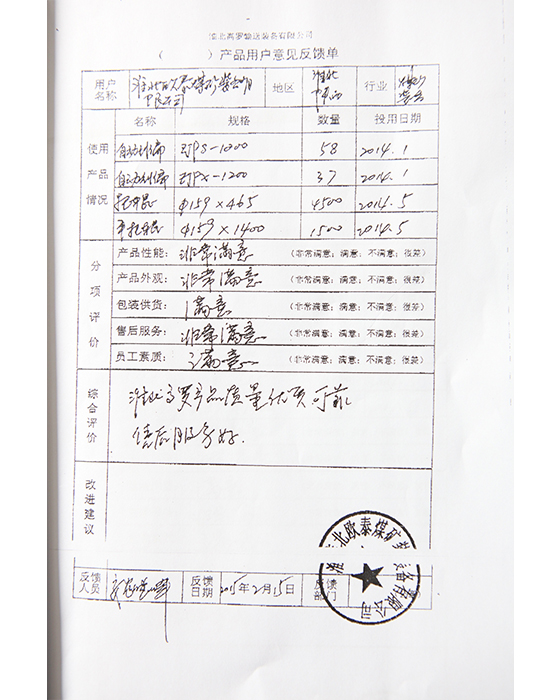 淮北高罗输送装备有限公司
（ ）产品用户意见反馈单
用户名称 淮北欧泰煤矿装备有限公司 地区 淮北 行业 煤矿装备
使用产品情况 名称 规格 数量 投用日期
自动纠偏 ZJPS-1000 58 2014.1
自动纠偏 ZJPX-1200 37 2014.1
托辊 φ159×465 4500 2014.5
平托辊 φ159×1400 1500 2014.5
分项评价 产品性能：非常满意 （非常满意；满意；不满意；很差）
产品外观：非常满意 （非常满意；满意；不满意；很差）
包装供货：满意 （非常满意；满意；不满意；很差）
售后服务：非常满意 （非常满意；满意；不满意；很差）
员工素质：满意 （非常满意；满意；不满意；很差）
综合评价 淮北高罗产品质量优质可靠
售后服务好.
改进建议
反馈人员 反馈日期 2015年2月15日 反馈部门
淮北欧泰煤矿装备有限公司